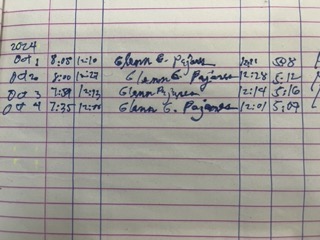 2024
Oct 1 8:05 12:10 Glenn G. Pajares 5:08
Oct 2 8:00 12:27 Glenn G. Pajares 12:28 5:12
Oct 3 7:59 12:13 Glenn Pajares 12:14 5:16
Oct 4 7:35 12:00 Glenn G. Pajares 12:01 5:09